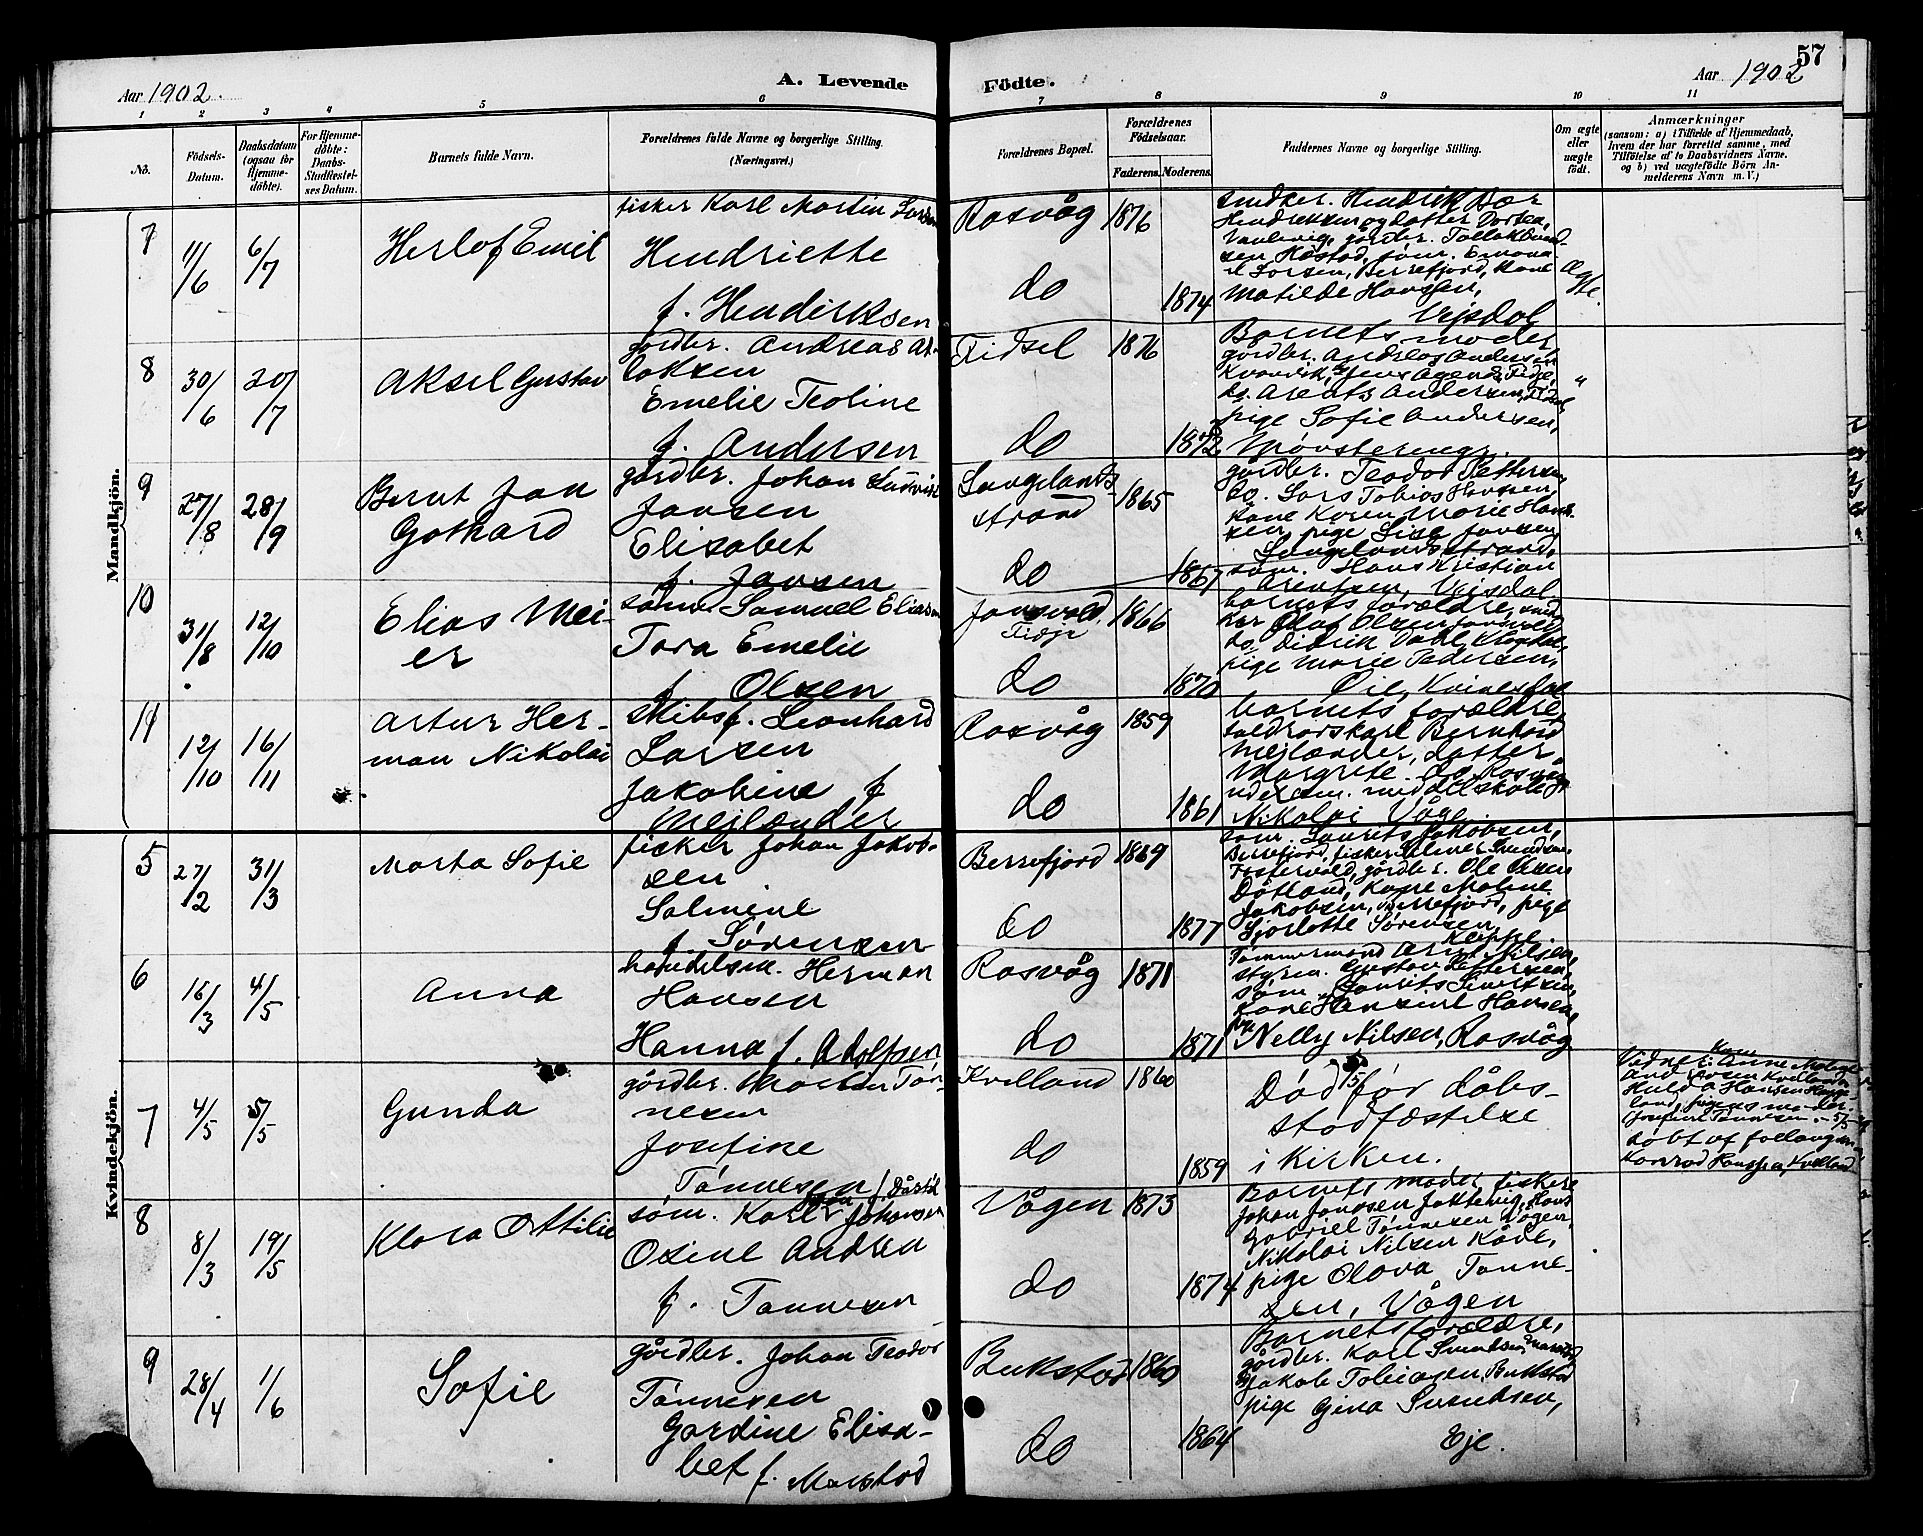 57
Aar 1902.
A. Levende
Födte.
Aar 1902
1 2 3 4 5 6 7 8 9 10 11
No.
Födsels-
Datum.
Daabsdatum
(ogsaa for
Hjemme-
döbte).
For Hjemme-
döbte:
Daabs-
Stadfæstel-
ses Datum.
Barnets fulde Navn.
Forældrenes fulde Navne og borgerlige Stilling.
(Næringsvei.)
Forældrenes Bopæl.
Forældrenes
Födselsaar.
Faderens.
Moderens.
Faddernes Navne og borgerlige Stilling.
Om ægte
eller
uægte
födt.
Anmærkninger
(saasom: a) i Tilfælde af Hjemmedaab,
hvem der har forrettet samme, med
Tilföielse af to Daabsvidners Navne.
og b) ved uægtefödte Börn An-
melderens Navn m. V.)
Mandkjön.
7
11/6
6/7
Herlof Emil
fisker Karl Martin Larsen
Hendriette
f. Hendirksen
Rasvåg
do
1876
1874
snedker. Hendrik Bær
Hendreksen og datter
Berrefjord, kone
Matilde Hansen,
Vejsdal
Ægte.
8
30/6
20/7
Aksel Gustav
gårdbr. Andreas As-
laksen
Emelie Teoline
f. Andersen
Fidsel
do
1876
1872
Barnets moder,
gårdbr. Andreas Andersen
pige Sofie Andersen,
"
9
27/8
28/9
Bernt Jan
Gothard
gårdbr. Johan Ludvik
Jansen
Elisabet
f. Jansen
Langelands-
strand
do
1865
1867
gårdbr. Teodor Pettersen
do. Lars Tobias Hansen,
kone Karen Marie Han-
sen, pige Lise Jansen
Langelandsstrand,
søm. Hans Kristian
Arentsen, Vejsdal
10
31/8
12/10
Elias Mei-
er
Samuel Eliasen
Tora Emelie
f. Olsen
Jansvold
Fidje
do
1866
1870
barnets forældre, sned-
ker Olaf Olsen Jansvold
do. Didrik Dahl,
pige Marie Pedersen,
Øie, Kvinesdal
11
12/10
16/11
Artur Her-
man Nikolai
Skibsf. Leonhard
Larsen
Jakobine f.
Mejlænder
Rasvåg
do
1859
1861
barnets forældre,
toldrorskarl Bernhard
Mejlænder, datter
Margrete do. Rasvåg
Nikolai Våge
Kvindekjön.
5
27/2
31/3
Marta Sofie
fisker Johan Jakob-
sen
Salmine
f. Sørensen
Berrefjord
do
1869
1877
søm. Laurits Jakobsen,
Berrefjord, fisker Salmer Svendsen
gårdbr. Ole Olsen
Døtland, Kone Maline
Jakobsen, Berrefjord, pige
Sjarlotte Sørensen,
Kleppe
6
16/3
4/5
Anna
handelsm. Herman
Hansen
Hanna f. Adolfsen
Rasvåg
do
1871
1871
Tømmermand Nilsen,
styrm. Gustav Pettersen,
søm. Laurits Sivertsen,
kone Hansine Hansen
pige Nelly Nilsen, Rasvåg
7
4/5
5/5
Gunda
gårdbr. Martin Tøn-
nesen
Josefine
Tønnesen f. Dåstøl
Kvelland
do
1860
1859
Død 5/5 før dåbs-
stadfæstelse
i kirken.
Vidner: Kone Anne Malene
Hulda Hansen
land, pigens moder
Josefine Tønnesen – 5/5
døbt af
Konrad Hanssen, Kvelland
8
8/3
19/5
Klara Ottilie
søm. Karl Johansen
Osine Andrea
f. Tønnesen
Vågen
do
1873
1874
Barnets moder, fiskere
Johan Jansen
Gabriel Tønnesen Vågen,
Nikolai Nilsen Kåre,
pige Olava Tønne-
sen, Vågen
9
28/4
1/6
Sofie
gårdbr. Johan Teodor
Tønnesen
Gardine Elisa-
bet f. Marstad
Bukstad
do
1860
1864
Barnets forældre,
gårdbr. Karl Svendsen
Jakob Tobiasen, Bukstad
pige Gina Svendsen,
Eje.